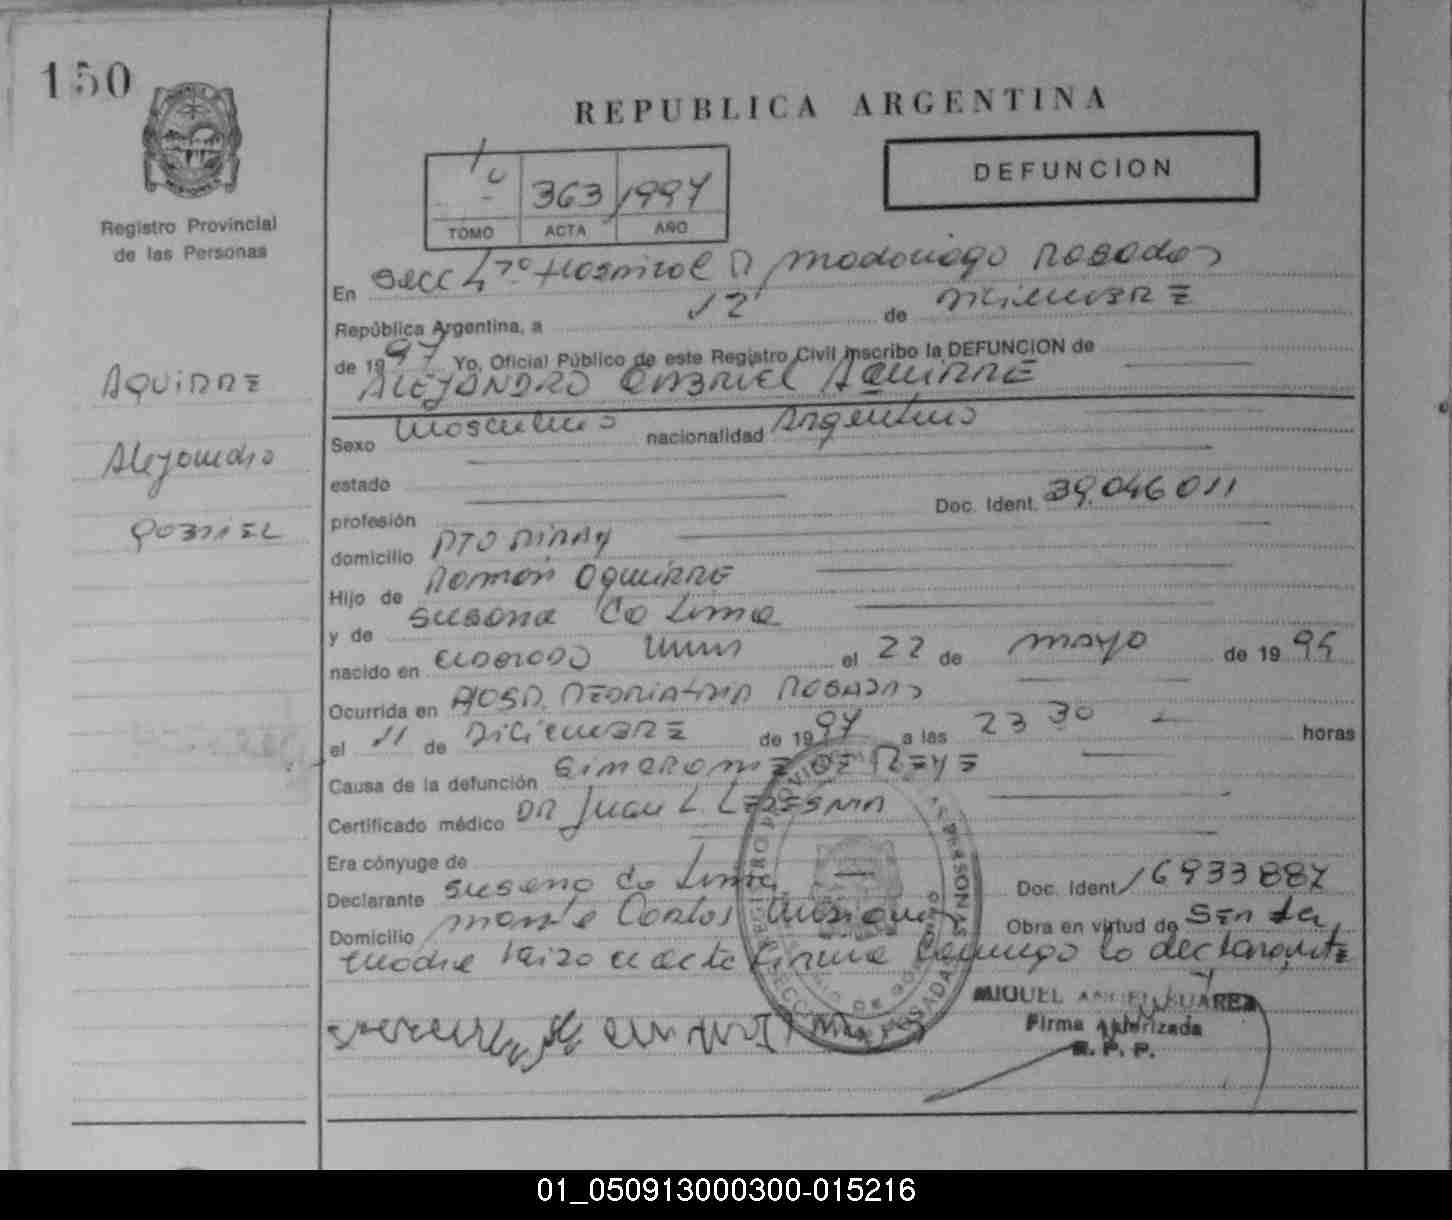 150
REPUBLICA ARGENTINA
DEFUNCION
1º 363 1997
TOMO ACTA AÑO
Registro Provincial
de las Personas
En Secc 7º Hospital R Madariaga Posadas
República Argentina, a 12 de Diciembre
de 1997 Yo, Oficial Público de este Registro Civil inscribo la DEFUNCION de
ALEJANDRO GABRIEL AGUIRRE
AGUIRRE
Alejandro
GABRIEL
Sexo Masculino nacionalidad Argentino
estado
profesión Doc. Ident. 39.046011
domicilio PTO PIRAY
Hijo de Ramon Aguirre
y de Susana Da Lima
nacido en Eldorado Mnes el 22 de mayo de 1995
Ocurrida en HOSP. PEDIATRIA POSADAS
el 11 de Diciembre de 1997 a las 23 30 horas
Causa de la defunción SINDROME DE REYE
Certificado médico DR Juan L. LEDESMA
Era cónyuge de
Declarante Susana Da Lima Doc. Ident 16933887
Domicilio Monte Carlos Obra en virtud de Ser la
madre acta firma conmigo lo declarante
REGISTRO PROVINCIAL DE LAS PERSONAS
MIGUEL ANGEL SUAREZ
Firma Autorizada
R. P. P.
01_050913000300-015216